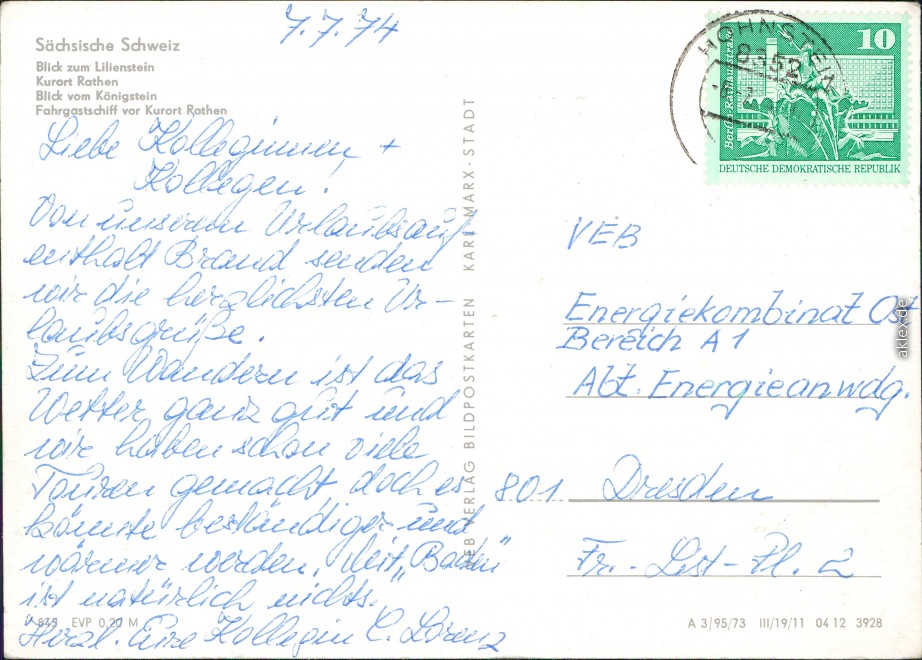 7.7.74
Sächsische Schweiz
Blick zum Lilienstein
Kurort Rathen
Blick vom Königstein
Fahrgastschiff vor Kurort Rathen
Liebe Kolleginnen +
Kollegen!
Von unserem Urlaubsauf-
enthalt Brand senden
wir die herzlichsten Ur-
laubsgrüße.
Zum Wandern ist das
Wetter ganz gut und
wir haben schon viele
Touren gemacht, doch es
könnte beständiger und
wärmer werden. Mit „Baden"
ist natürlich nichts.
Herzl. Eure Kollegin C. Lorenz
845 EVP 0,20 M
VERLAG BILDPOSTKARTEN KARL-MARX-STADT
HOHNSTEIN
8352
10
Berlin-Rathausstraße
DEUTSCHE DEMOKRATISCHE REPUBLIK
VEB
Energiekombinat Ost
Bereich A 1
Abt. Energieanwdg.
801 Dresden
Fr.-List-Pl. 2
A 3/95/73 III/19/11 04 12 3928
aklex.de